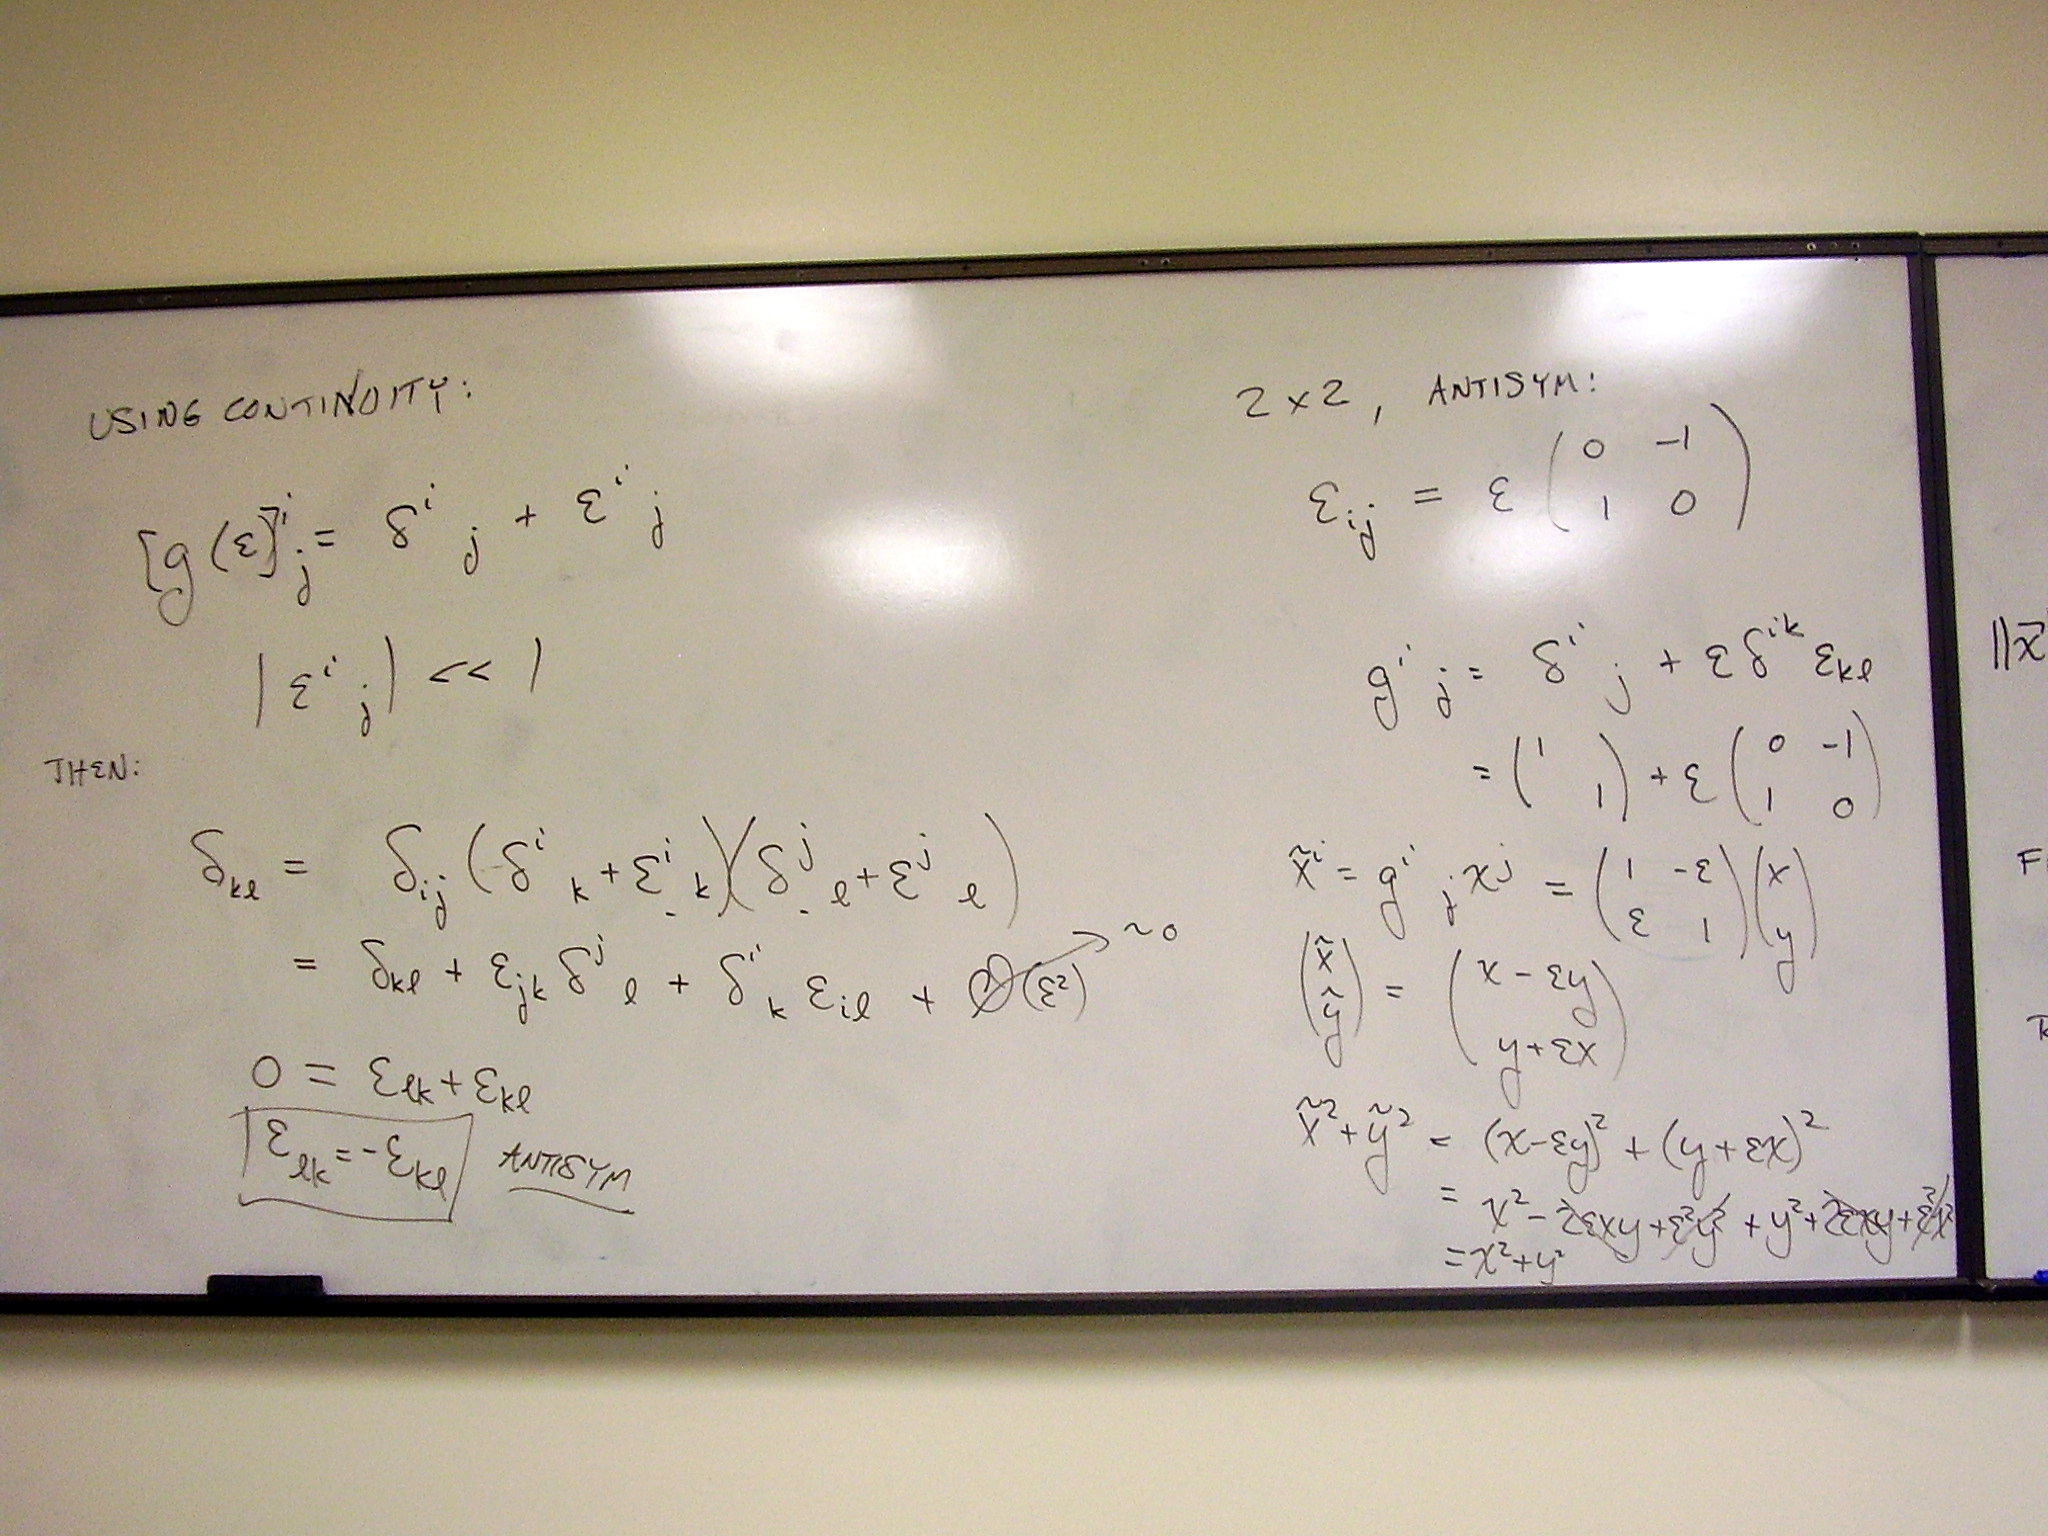 USING CONTINUITY:
[g(ε)]ⁱ_j = δⁱ_j + εⁱ_j
|εⁱ_j| << 1
THEN:
δ_kℓ = δ_ij (δⁱ_k + εⁱ_k)(δʲ_ℓ + εʲ_ℓ)
= δ_kℓ + ε_jk δʲ_ℓ + δⁱ_k ε_iℓ + O(ε²) → ~0
0 = ε_ℓk + ε_kℓ
ε_ℓk = -ε_kℓ ANTISYM
2×2, ANTISYM:
ε_ij = ε (0 -1
1 0)
gⁱ_j = δⁱ_j + ε δ^ik ε_kℓ
= (1
1) + ε (0 -1
1 0)
x̃ⁱ = gⁱ_j xʲ = (1 -ε
ε 1)(x
y)
(x̃
ỹ) = (x - εy
y + εx)
x̃² + ỹ² = (x-εy)² + (y+εx)²
= x² - 2εxy + ε²y² + y² + 2εxy + ε²x²
= x² + y²
||x⃗